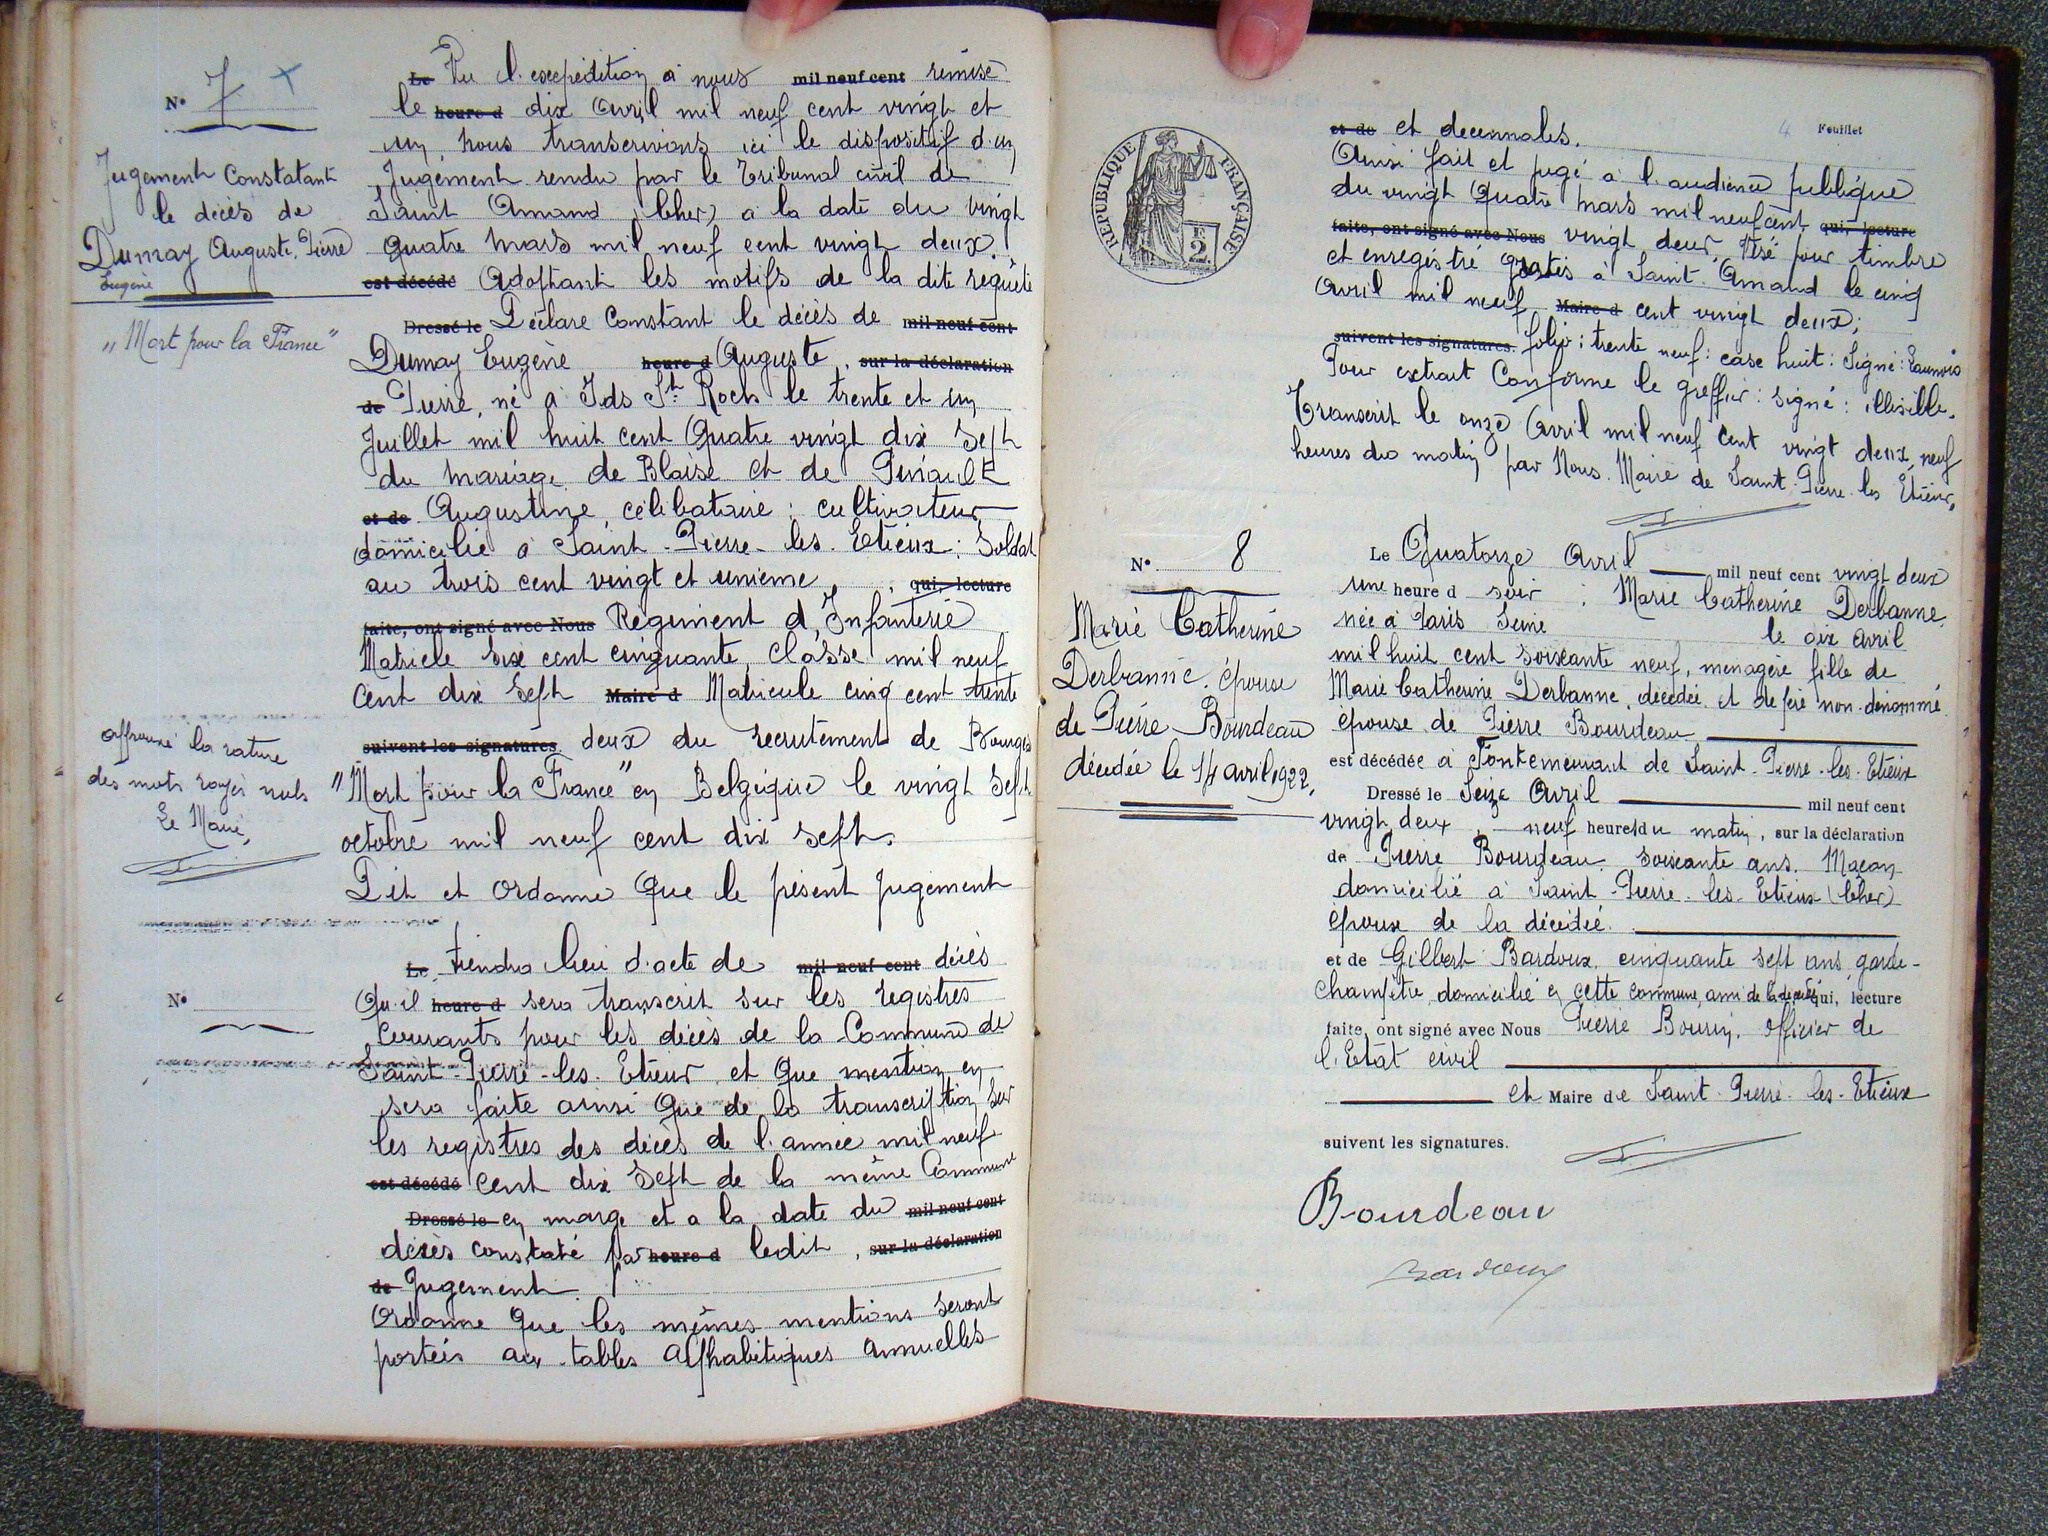 N° 7 x
Jugement Constatant
le décès de
Dumay Auguste, Pierre
Eugène
"Mort pour la France"
approuvé la rature
des mots rayés nuls
Le Maire,
N°
Le Vu l'exexpédition à nous mil neuf cent remise
le heure d dix Avril mil neuf cent vingt et
un, nous transcrivons ici le dispositif d'un
Jugement rendu par le Tribunal civil de
Saint Amand (Cher) à la date du vingt
quatre mars mil neuf cent vingt deux.
est décédé Adoptant les motifs de la dite requête
Dressé le Déclare Constant le décès de mil neuf cent
Dumay Eugène heure d Auguste, sur la déclaration
de Pierre, né à Ids St Roch le trente et un
Juillet mil huit cent quatre vingt dix sept
du mariage de Blaise et de Pinault
et de Augustine, célibataire; cultivateur
domicilié à Saint-Pierre-les-Etieux; Soldat
au trois cent vingt et unième, qui, lecture
faite, ont signé avec Nous Régiment d'Infanterie
Matricle six cent cinquante, Classe mil neuf
cent dix sept Maire d Matricule cinq cent trente
suivent les signatures. deux du recrutement de Bourges
"Mort pour la France" en Belgique le vingt sept
octobre mil neuf cent dix sept.
Dit et ordonne que le présent jugement
Le tiendra lieu d'acte de mil neuf cent décès
Qu'il heure d sera transcrit sur les registres
courants pour les décès de la Commune de
Saint-Pierre-les-Etieux et que mention en
sera faite ainsi que de la transcription sur
les registres des décès de l'année mil neuf
est décédé cent dix sept de la même Commune
Dressé le en marge et à la date du mil neuf cent
décès constaté par heure d ledit, sur la déclaration
de Jugement.
Ordonne que les mêmes mentions seront
portées aux tables alphabétiques annuelles
4 Feuillet
RÉPUBLIQUE FRANÇAISE
2 F
et de et décennales.
Ainsi fait et jugé à l'audience publique
du vingt quatre mars mil neuf cent, qui, lecture
faite, ont signé avec Nous vingt deux. Visé pour timbre
et enregistré gratis à Saint-Amand le cinq
Avril mil neuf Maire d cent vingt deux;
suivent les signatures. folio: trente neuf: case huit: Signé:
Pour extrait Conforme le greffier: signé: illisible.
Transcrit le onze Avril mil neuf cent vingt deux, neuf
heures du matin par Nous Maire de Saint-Pierre-les-Etieux.
N° 8
Marie Catherine
Derbanne épouse
de Pierre Bourdeau
décédée le 14 avril 1922.
Le Quatorze Avril mil neuf cent vingt deux
une heure d soir; Marie Catherine Derbanne,
née à Paris Seine le dix avril
mil huit cent soixante neuf, ménagère fille de
Marie Catherine Derbanne, décédée et de père non-dénommé
épouse de Pierre Bourdeau
est décédée à de Saint-Pierre-les-Etieux
Dressé le Seize Avril mil neuf cent
vingt deux, neuf heures du matin, sur la déclaration
de Pierre Bourdeau, soixante ans, Maçon
domicilié à Saint-Pierre-les-Etieux (Cher)
époux de la décédée.
et de Gilbert Bardoux, cinquante sept ans garde-
champêtre domicilié en cette commune, ami de la décédée, qui, lecture
faite, ont signé avec Nous Pierre Bourin, officier de
l'Etat civil
et Maire de Saint-Pierre-les-Etieux
suivent les signatures.
Bourdeau
Bardoux